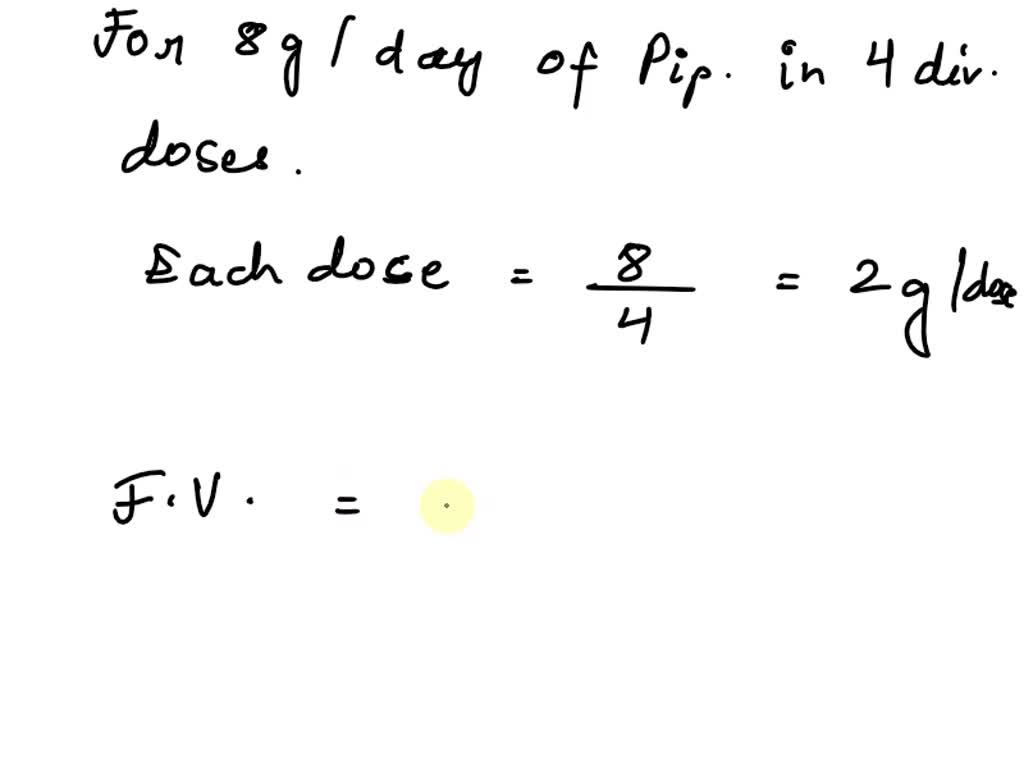 For 8g/day of Pip. in 4 div.
doses.
Each dose = 8/4 = 2g/dose
F.V. =